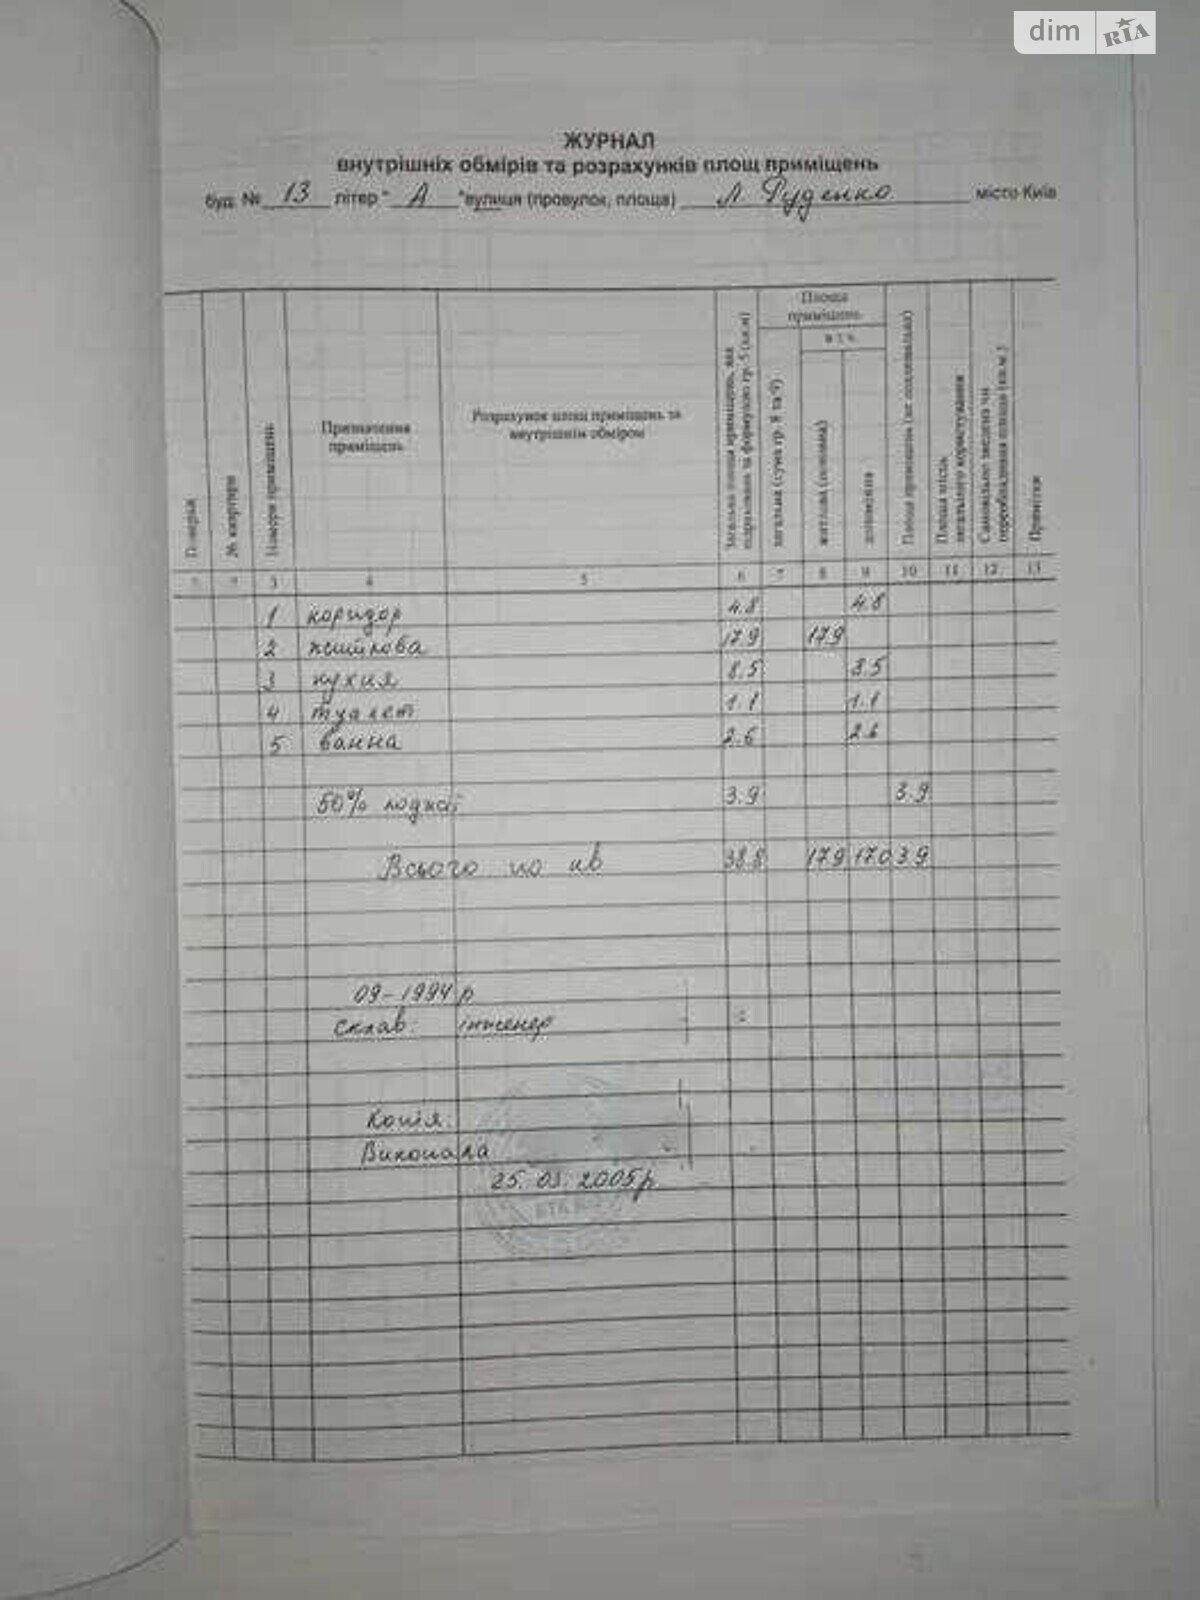 dim RIA
ЖУРНАЛ
внутрішніх обмірів та розрахунків площ приміщень
буд. № 13 літер " А " вулиця (провулок, площа) Л. Руденко місто Київ
Поверхи
№ квартири
Номери приміщень
Призначення приміщень
Розрахунок площ приміщень за внутрішнім обміром
Загальна площа приміщень, яка
підрахована за формулою гр. 5 (кв.м)
Площа приміщень
в т.ч.
загальна (сума гр. 8 та 9)
житлова (основна)
допоміжна
Площа приміщень (не опалювальна)
Площа місць
загального користування
Самовільно зведена чи
переобладнана площа (кв.м.)
Примітки
1 2 3 4 5 6 7 8 9 10 11 12 13
1 коридор 4.8 4.8
2 житлова 17.9 17.9
3 кухня 8.5 8.5
4 туалет 1.1 1.1
5 ванна 2.6 2.6
50% лоджії 3.9 3.9
Всього по кв 38.8 17.9 17.0 3.9
09-1994 р
склав: інженер
Копія:
Виконала
25. 03. 2005р.